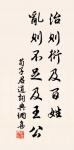 治则衍及百姓
亂则不足及王公
荀子君道词典網